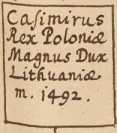 Casimirus
Rex Poloniæ
Magnus Dux
Lithuaniæ
m. 1492.